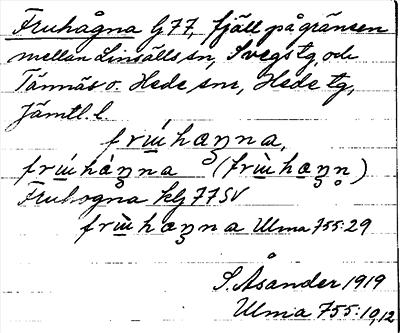 Fruhågna G77, fjäll på gränsen
mellan Linsälls sn, Svegs tg, och
Tännäs o. Hede snr, Hede tg,
Jämtl. l.
frẁhaŋna,
frẃháŋna (frẁhaŋn̥)
Fruhogna kg 77 SV
frẁhaŋna Ulma 755:29
S. Åsander 1919
Ulma 755:10,12